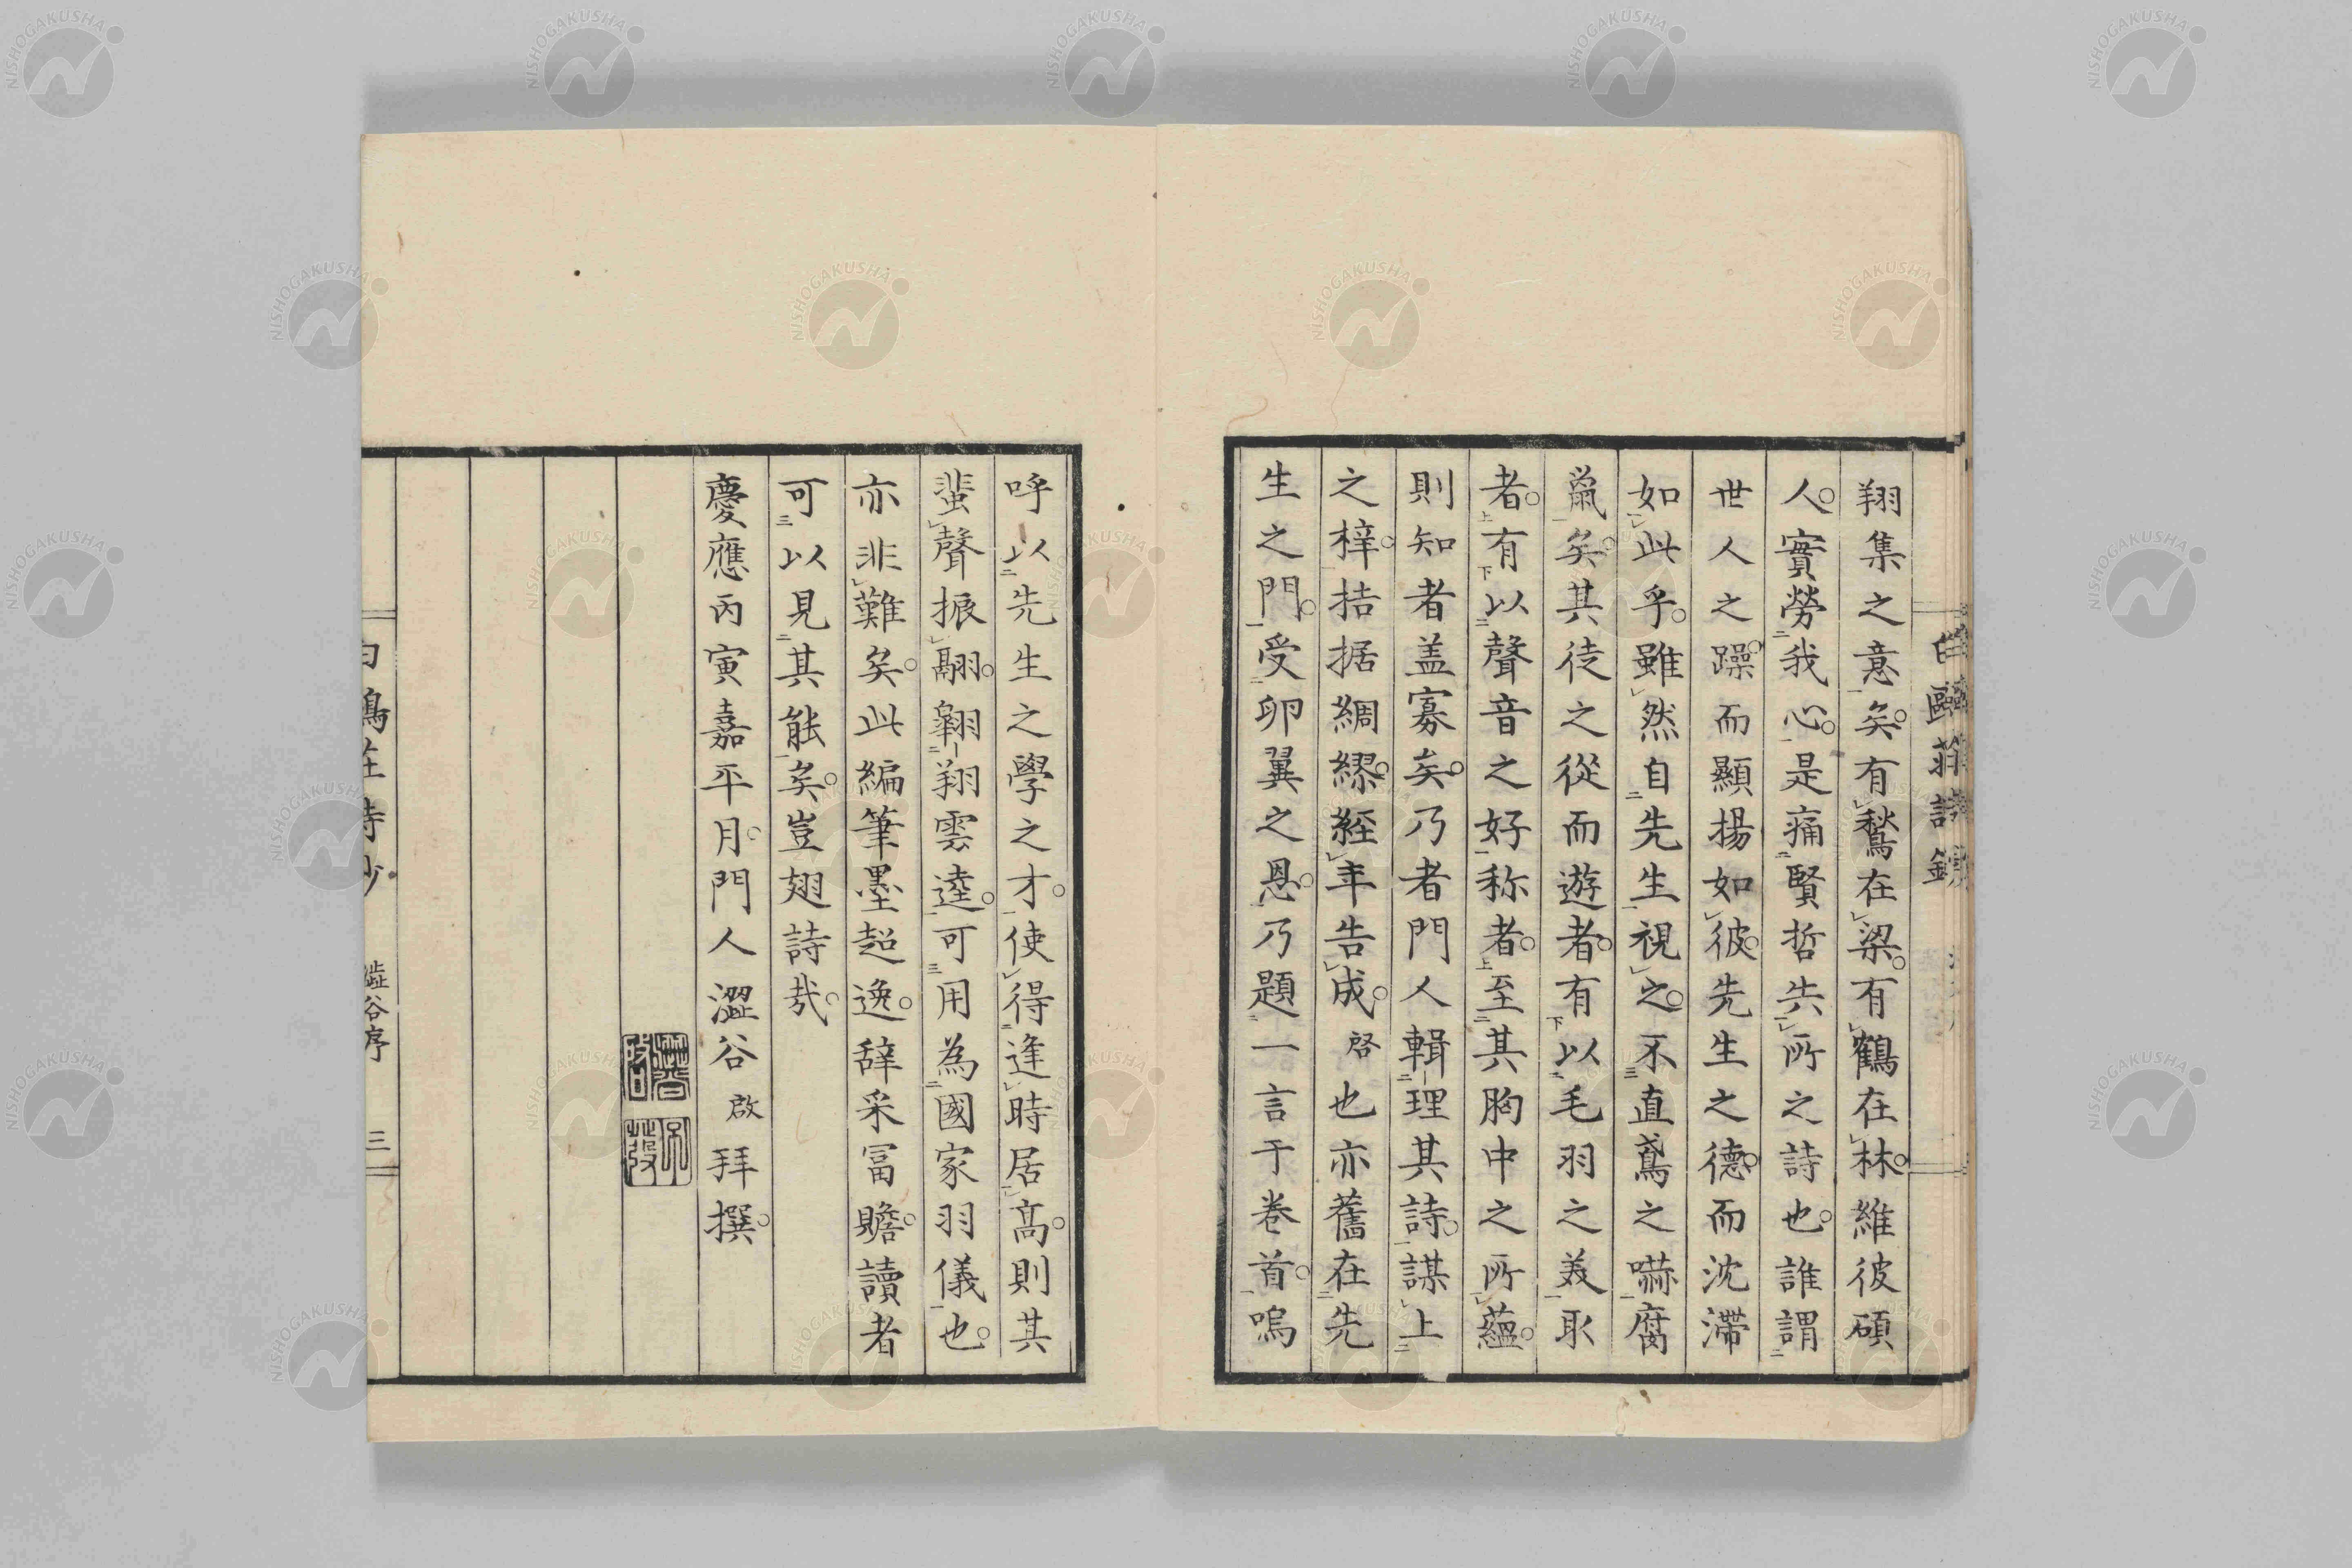 翔集之意矣有鶖在梁有鶴在林維彼碩
人實勞我心是痛賢哲共所之詩也誰謂
世人之躁而顯揚如彼先生之德而沈滯
如此乎雖然自先生視之不直鳶之嚇腐
䑕矣其徒之從而遊者有以毛羽之美取
者有以聲音之好称者至其胸中之所蘊
則知者盖寡矣乃者門人輯理其詩謀上
之梓拮据綢繆経年告成啓也亦舊在先
生之門受卵翼之恩乃題一言于卷首嗚
呼以先生之學之才使得逢時居高則其
蜚聲振翮翱翔雲逵可用為國家羽儀也
亦非難矣此編筆墨超逸辞采冨贍讀者
可以見其能矣豈翅詩哉
慶應丙寅嘉平月門人澀谷啟拜撰
白鷗莊詩鈔
澁谷序
三
NISHOGAKUSHA